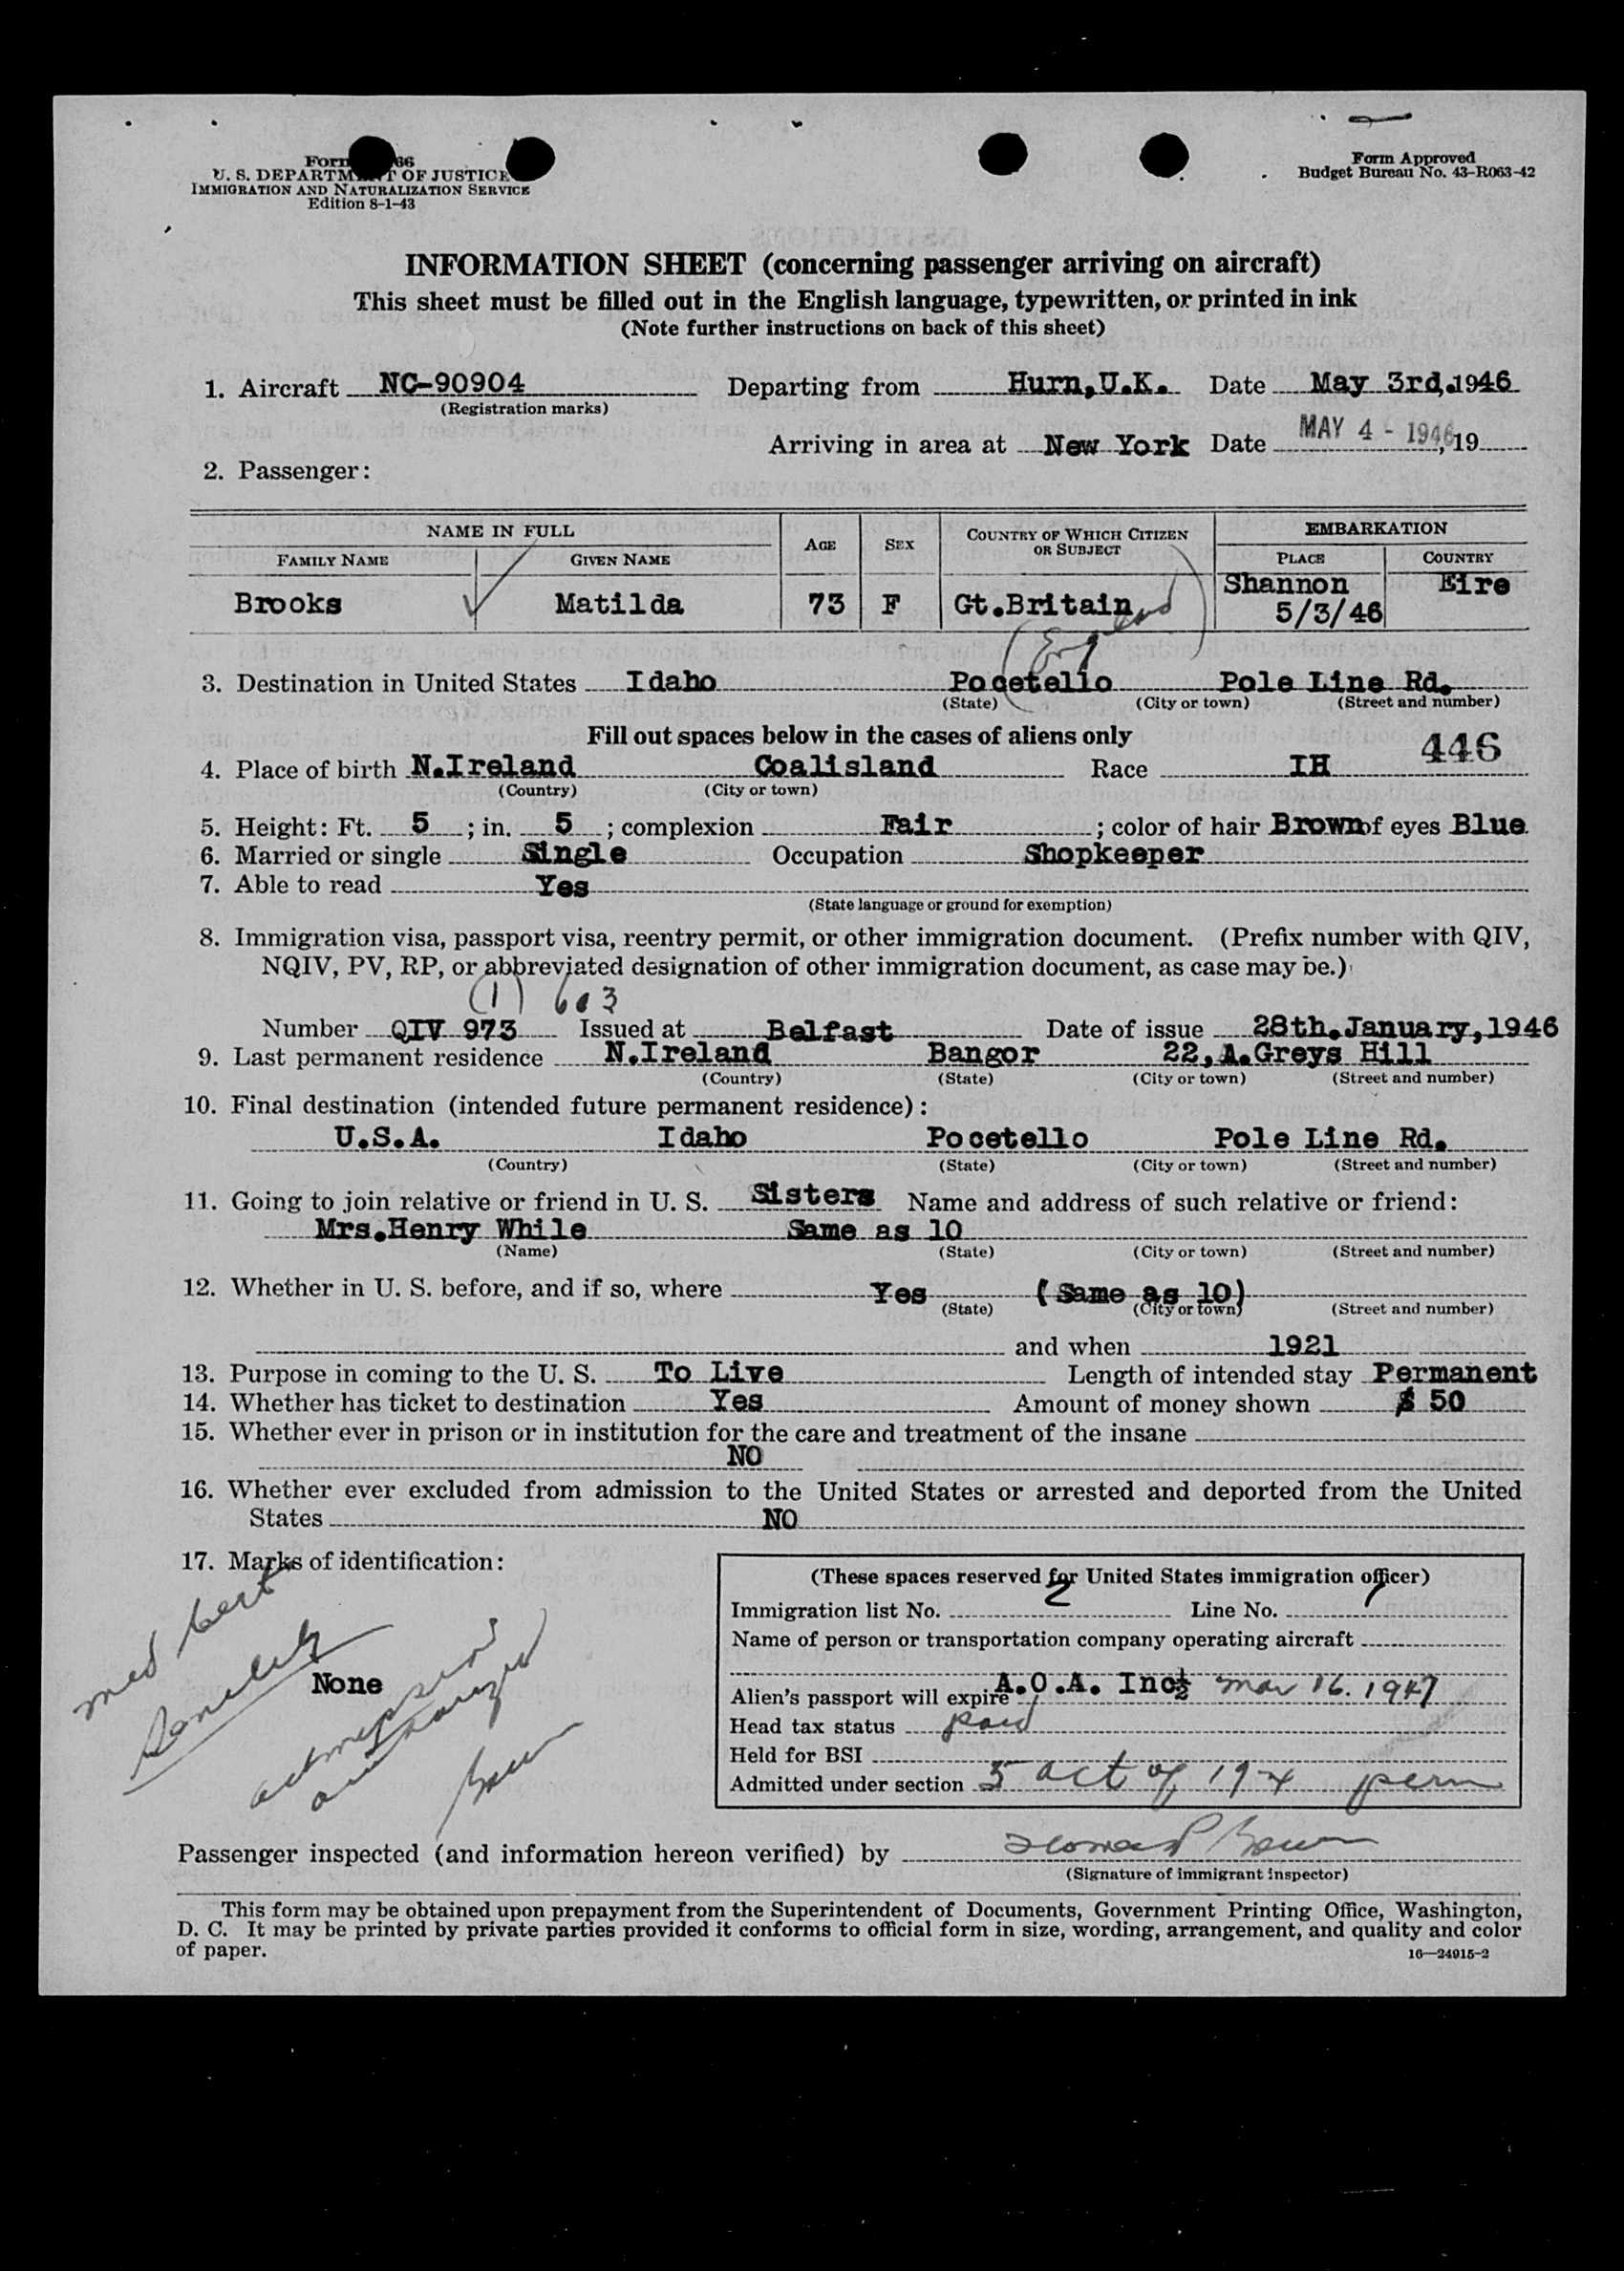 Form 66
U. S. DEPARTMENT OF JUSTICE
IMMIGRATION AND NATURALIZATION SERVICE
Edition 8-1-43
Form Approved
Budget Bureau No. 43-R063-42
INFORMATION SHEET (concerning passenger arriving on aircraft)
This sheet must be filled out in the English language, typewritten, or printed in ink
(Note further instructions on back of this sheet)
1. Aircraft NC-90904 Departing from Hurn,U.K. Date May 3rd,1946
(Registration marks)
Arriving in area at New York Date MAY 4 - 1946, 19
2. Passenger:
NAME IN FULL AGE SEX COUNTRY OF WHICH CITIZEN OR SUBJECT EMBARKATION
FAMILY NAME GIVEN NAME PLACE COUNTRY
Brooks Matilda 73 F Gt.Britain Shannon 5/3/46 Eire
(England)
3. Destination in United States Idaho Pocetello Pole Line Rd.
(State) (City or town) (Street and number)
Fill out spaces below in the cases of aliens only
446
4. Place of birth N.Ireland Coalisland Race IH
(Country) (City or town)
5. Height: Ft. 5 ; in. 5 ; complexion Fair ; color of hair Brown of eyes Blue
6. Married or single Single Occupation Shopkeeper
7. Able to read Yes
(State language or ground for exemption)
8. Immigration visa, passport visa, reentry permit, or other immigration document. (Prefix number with QIV,
NQIV, PV, RP, or abbreviated designation of other immigration document, as case may be.)
(1) 603
Number QIV 973 Issued at Belfast Date of issue 28th.January,1946
9. Last permanent residence N.Ireland Bangor 22,A.Greys Hill
(Country) (State) (City or town) (Street and number)
10. Final destination (intended future permanent residence):
U.S.A. Idaho Pocetello Pole Line Rd.
(Country) (State) (City or town) (Street and number)
11. Going to join relative or friend in U. S. Sisters Name and address of such relative or friend:
Mrs.Henry While Same as 10
(Name) (State) (City or town) (Street and number)
12. Whether in U. S. before, and if so, where Yes (Same as 10)
(State) (City or town) (Street and number)
and when 1921
13. Purpose in coming to the U. S. To Live Length of intended stay Permanent
14. Whether has ticket to destination Yes Amount of money shown $ 50
15. Whether ever in prison or in institution for the care and treatment of the insane
NO
16. Whether ever excluded from admission to the United States or arrested and deported from the United
States NO
17. Marks of identification:
med cert
Senility
None
admission
authorized
(These spaces reserved for United States immigration officer)
Immigration list No. 2 Line No. 7
Name of person or transportation company operating aircraft
A.O.A. Inc
Alien's passport will expire Mar 16. 1947
Head tax status paid
Held for BSI
Admitted under section 5 act of 1924 perm
Passenger inspected (and information hereon verified) by
(Signature of immigrant inspector)
This form may be obtained upon prepayment from the Superintendent of Documents, Government Printing Office, Washington,
D. C. It may be printed by private parties provided it conforms to official form in size, wording, arrangement, and quality and color
of paper.
16—24915-2